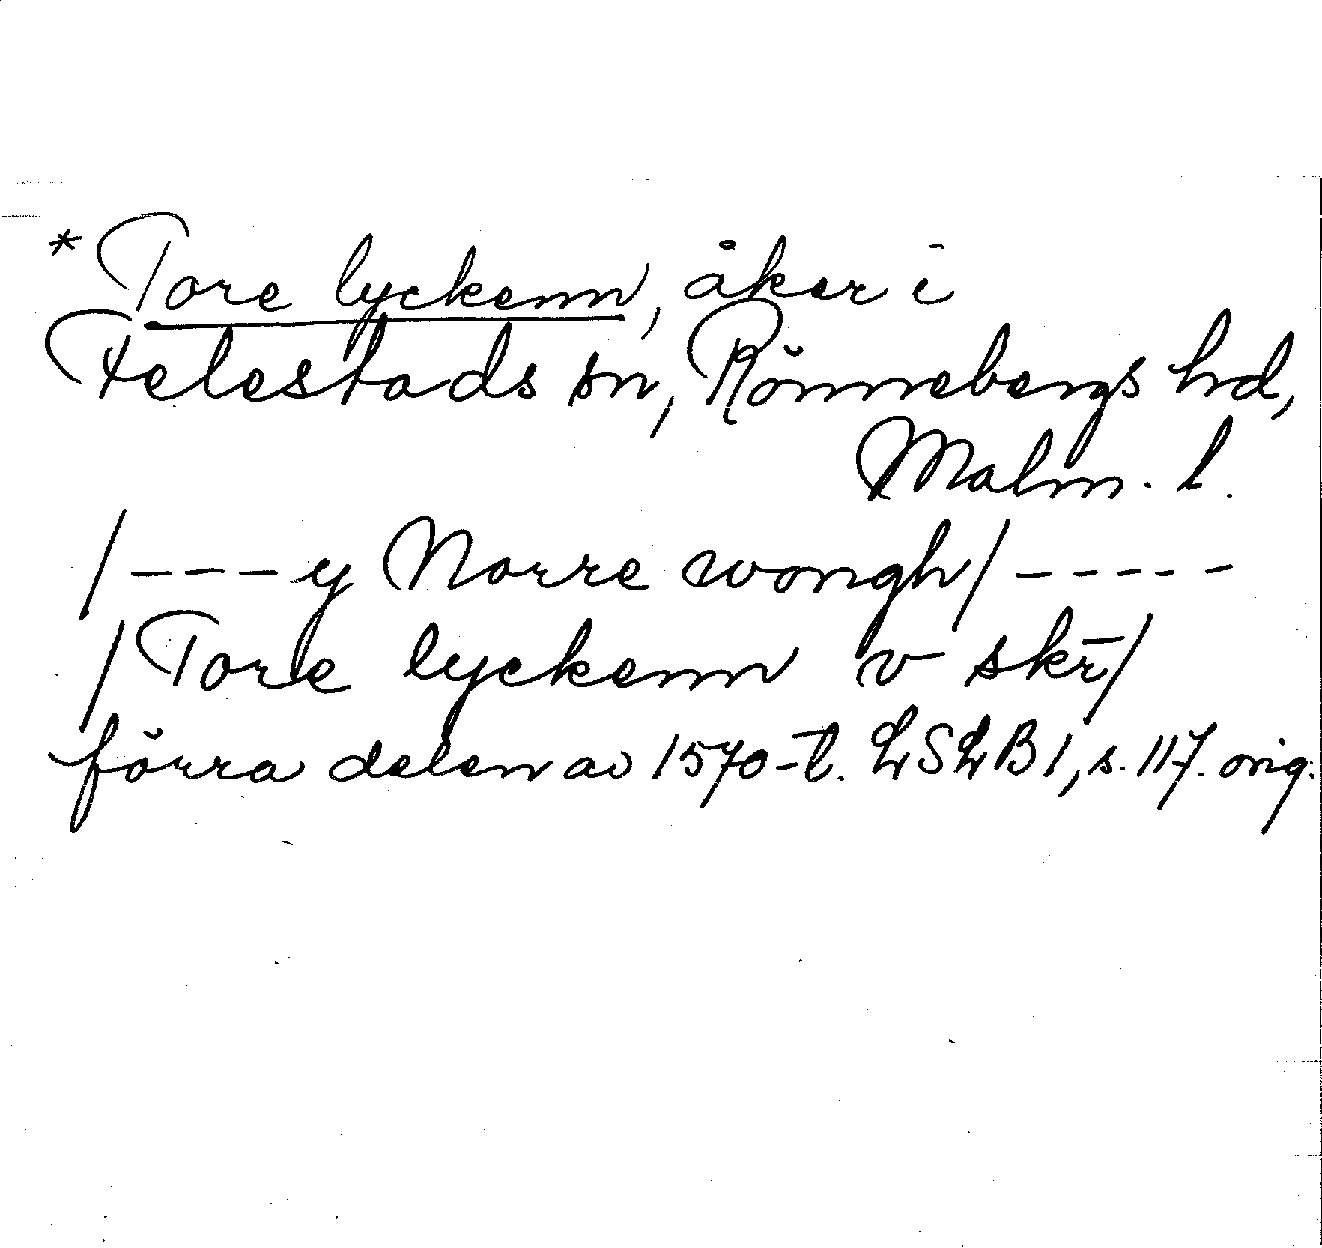 * Tore lyckenn, åker i
Felestads sn, Rönnebergs hd,
Malm. l.
/---y Norre wongh/-----
/Tore lyckenn v skr̄/
förra delen av 1570-t. LSLB1, s. 117. orig.